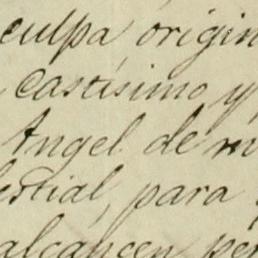 culpa origin
castísimo y
Angel de m
lestial, para
alcancen per